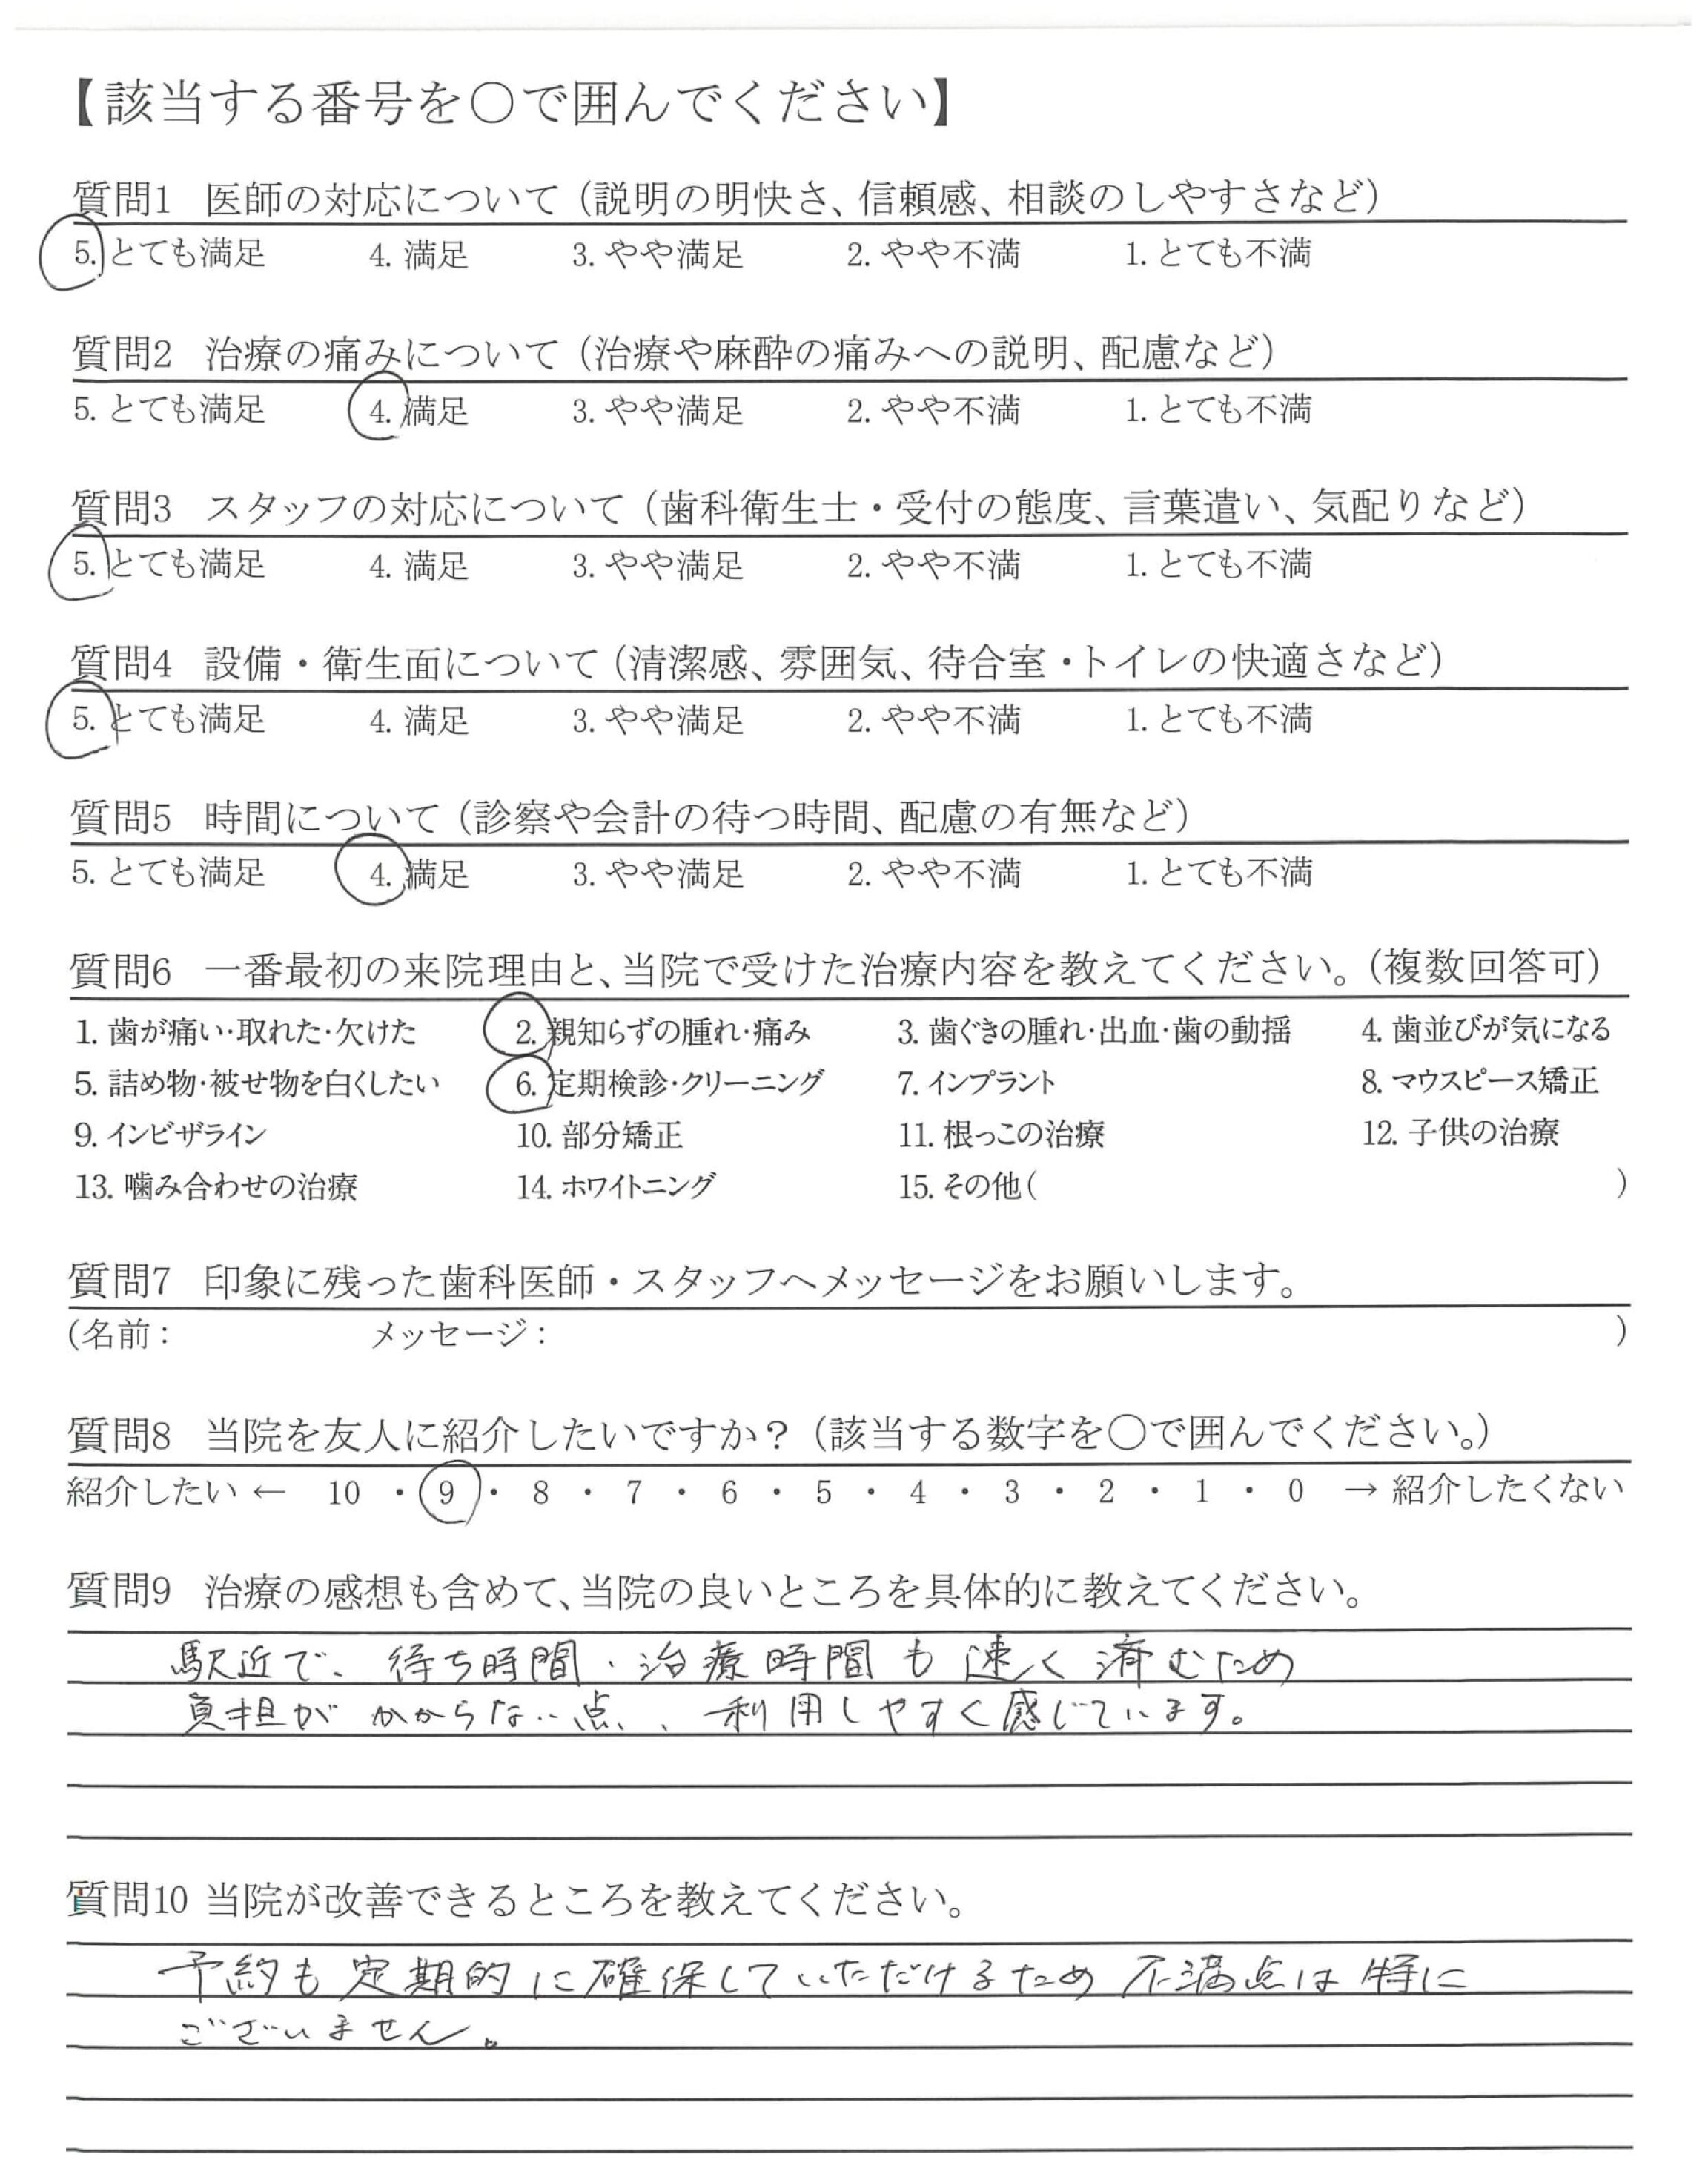 【該当する番号を○で囲んでください】
質問1 医師の対応について（説明の明快さ、信頼感、相談のしやすさなど）
5. とても満足 4. 満足 3. やや満足 2. やや不満 1. とても不満
質問2 治療の痛みについて（治療や麻酔の痛みへの説明、配慮など）
5. とても満足 4. 満足 3. やや満足 2. やや不満 1. とても不満
質問3 スタッフの対応について（歯科衛生士・受付の態度、言葉遣い、気配りなど）
5. とても満足 4. 満足 3. やや満足 2. やや不満 1. とても不満
質問4 設備・衛生面について（清潔感、雰囲気、待合室・トイレの快適さなど）
5. とても満足 4. 満足 3. やや満足 2. やや不満 1. とても不満
質問5 時間について（診察や会計の待つ時間、配慮の有無など）
5. とても満足 4. 満足 3. やや満足 2. やや不満 1. とても不満
質問6 一番最初の来院理由と、当院で受けた治療内容を教えてください。（複数回答可）
1. 歯が痛い・取れた・欠けた 2. 親知らずの腫れ・痛み 3. 歯ぐきの腫れ・出血・歯の動揺 4. 歯並びが気になる
5. 詰め物・被せ物を白くしたい 6. 定期検診・クリーニング 7. インプラント 8. マウスピース矯正
9. インビザライン 10. 部分矯正 11. 根っこの治療 12. 子供の治療
13. 噛み合わせの治療 14. ホワイトニング 15. その他（ ）
質問7 印象に残った歯科医師・スタッフへメッセージをお願いします。
（名前： メッセージ： ）
質問8 当院を友人に紹介したいですか？（該当する数字を○で囲んでください。）
紹介したい ← 10 ・ 9 ・ 8 ・ 7 ・ 6 ・ 5 ・ 4 ・ 3 ・ 2 ・ 1 ・ 0 → 紹介したくない
質問9 治療の感想も含めて、当院の良いところを具体的に教えてください。
駅近で、待ち時間・治療時間も速く済むため
負担がかからない点、利用しやすく感じています。
質問10 当院が改善できるところを教えてください。
予約も定期的に確保していただけるため不満点は特に
ございません。